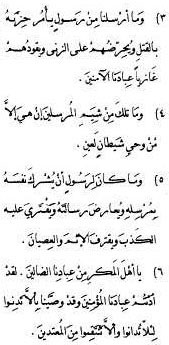 ٣) وَمَا أَرْسَلْنَا مِنْ رَسُولٍ يَأْمُرُ حِزْبَهُ
بِالقَتْلِ وَيُحَرِّضُهُمْ عَلَى الزِّنَى وَيَقُودُهُمْ
غَازِيًا عِبَادَنَا الآمِنِينَ.
٤) وَمَا تِلْكَ مِنْ شِيَمِ المُرْسَلِينَ إِنْ هِيَ إِلَّا
مِنْ وَحْيِ شَيْطَانٍ لَعِينٍ.
٥) وَمَا كَانَ لِرَسُولٍ أَنْ يُشْرِكَ نَفْسَهُ
بِمُرْسِلِهِ وَيُعَارِضَ رِسَالَتَهُ وَيَفْتَرِيَ عَلَيْهِ
الكَذِبَ وَيَقْتَرِفَ الإِثْمَ وَالعِصْيَانَ.
٦) يَا أَهْلَ المَكْرِ مِنْ عِبَادِنَا الضَّالِّينَ. لَقَدْ
عِبَادَنَا المُؤْمِنِينَ وَقَدْ وَصَّيْنَا بِأَلَّا تَدِينُوا
لِئَلَّا تُدَانُوا وَأَلَّا تَنْتَقِمُوا مِنَ المُعْتَدِينَ.